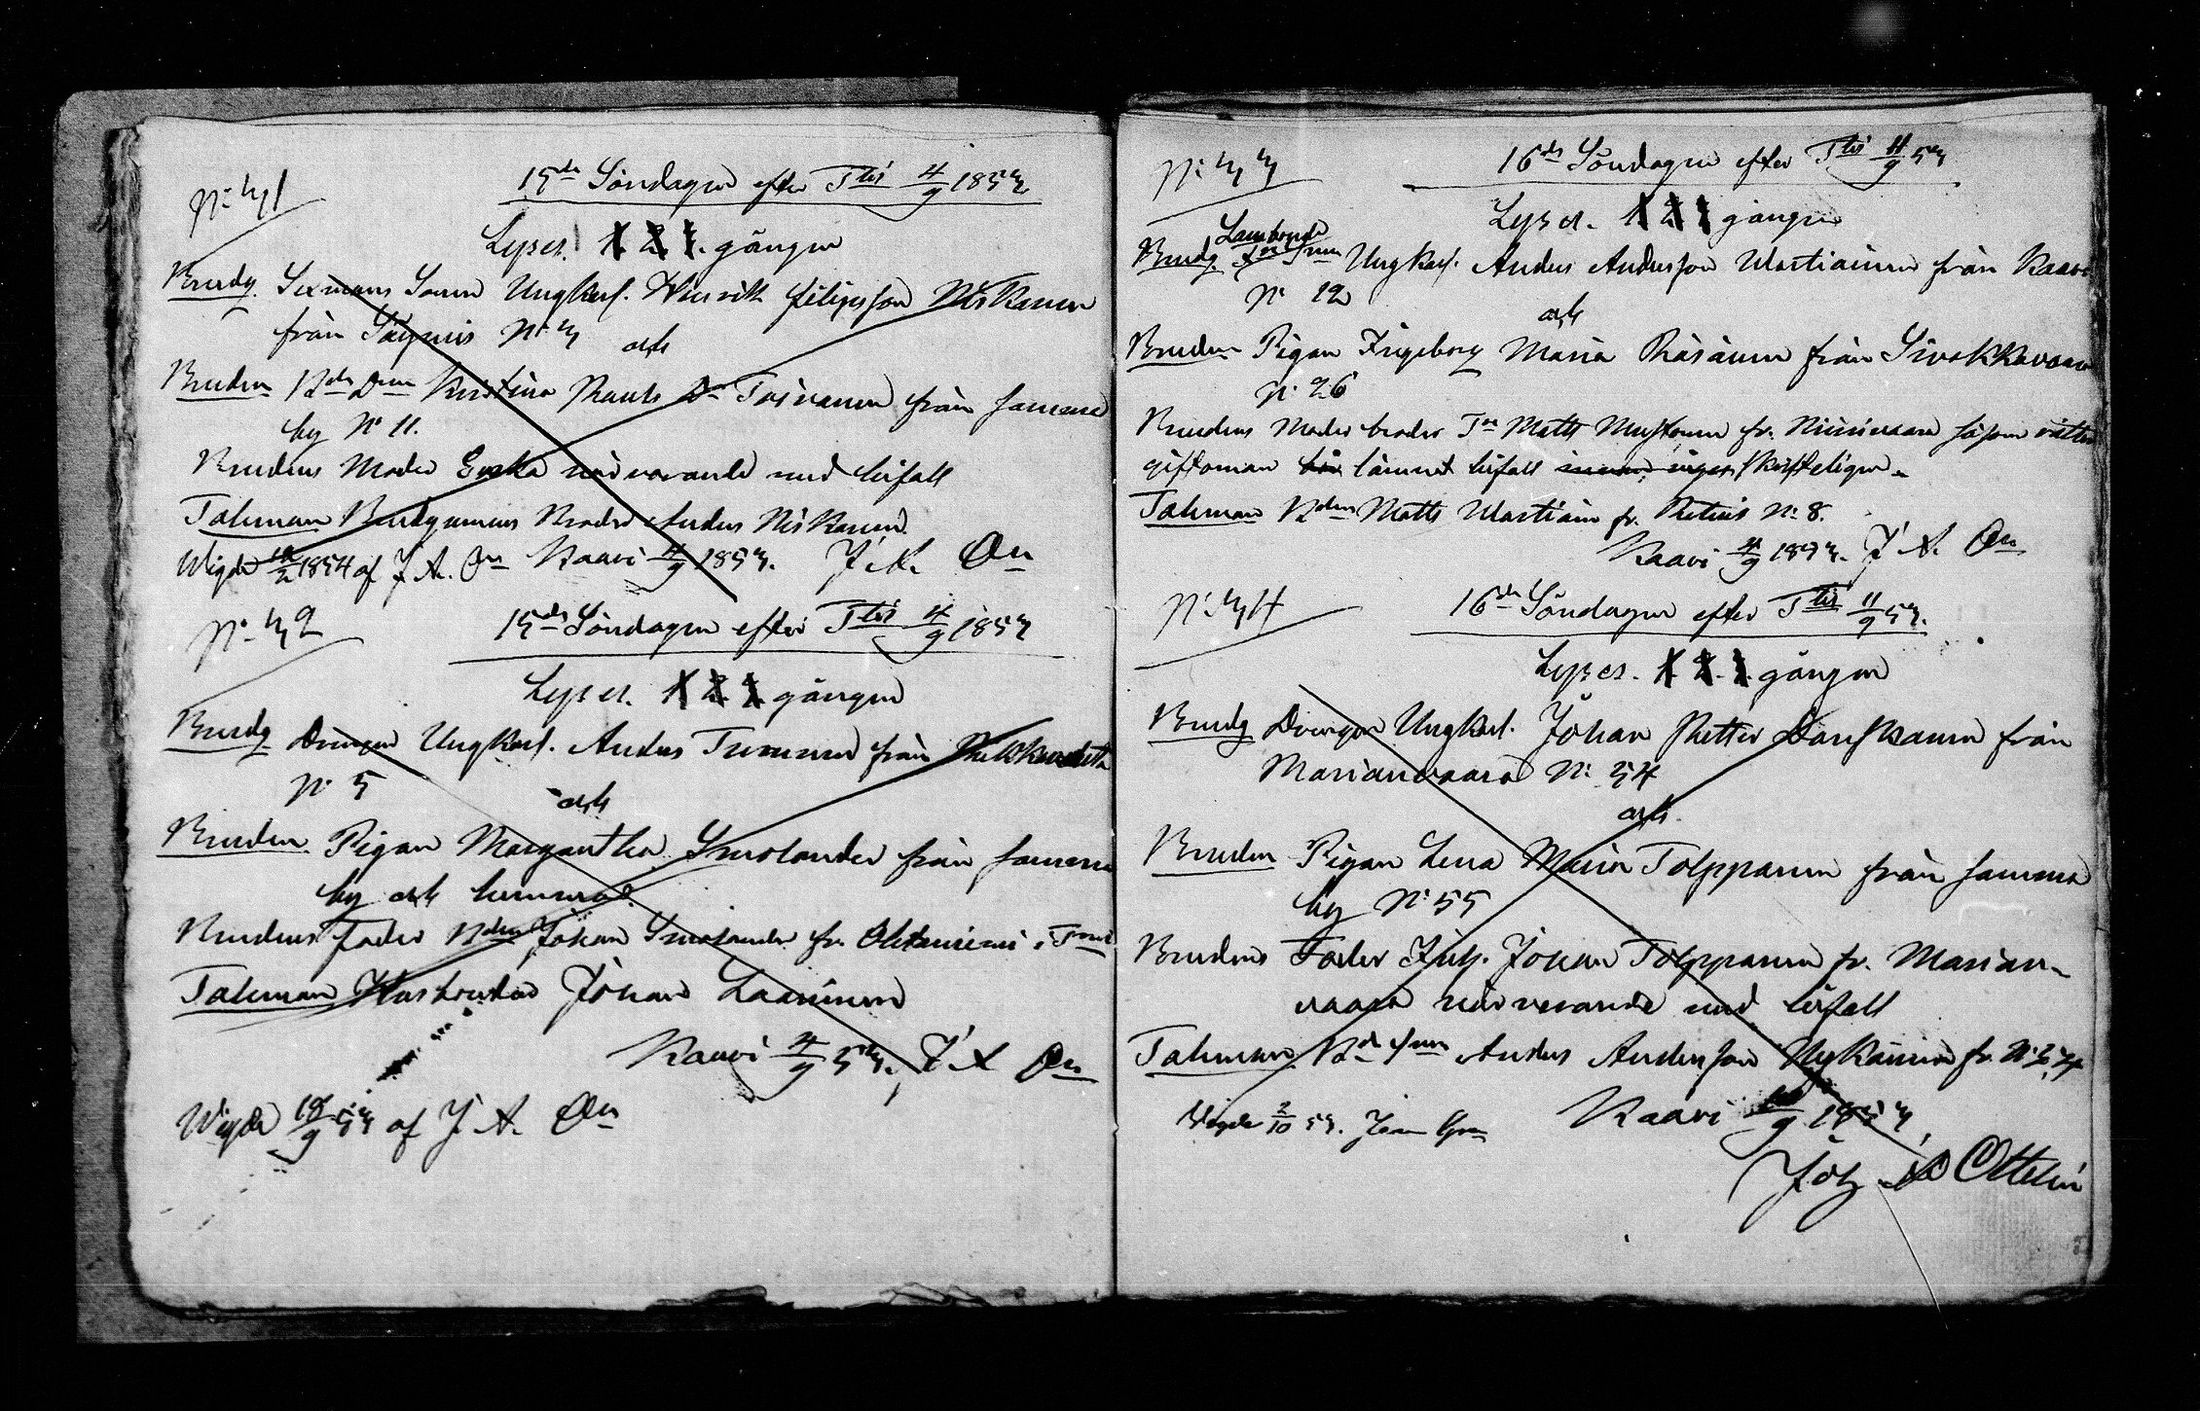 N: 31
15de Söndagen efter Ttis 4/9 1853
Lyses. 1 2 3. gången
Brudg. Sexmans Sonen Ungkarl. Henrik Filipsson Niskanen
från Säyneis N: 3 och
Bruden Bde Dren Kristina Pauls Dr Toivanen från samma
by N: 11.
Brudens Moder Enka närvarande med bifall
Taleman Brudgumens Broder Anders Niskanen
Wigde 12/2 1854 af J. A. On Kaavi 4/9 1853. J. A. On
N: 32
15de Söndagen efter Ttis 4/9 1853
Lyses. 1 2 3 gången
Brudg Drängen Ungkarl. Anders Turunen från
N: 5
och
Bruden Pigan Margaretha Smolander från samma
by och nummer.
Brudens Fader Bden Johan Smolander fr.
Taleman Husbonden Johan Laaninen
Kaavi 4/9 53. J A On
Wigde 18/9 53 af J. A. On
N: 33
16de Söndagen efter Ttis 11/9 53
Lyses. 1 2 3 gången
Landbonde
Brudg. Ungkarl. Anders Andersson Wartiainen från Kaavi
N: 12
och
Bruden Pigan Ingeborg Maria Räsänen från Sivakkavaara
N: 26
Brudens Moder broder Tr Matts Mustonen fr. Niinivaara såsom rätter
giftoman lämnat bifall skrifteligen
Taleman Bden Matts Wartiain fr. Retuis N: 8.
Kaavi 11/9 1853. J A. On
N: 34
16de Söndagen efter Ttis 11/9 53.
Lyses. 1. 2. 3. gången
Brudg Drängen Ungkarl. Johan Petter Danskanen från
Marianvaara N: 34
och.
Bruden Pigan Lena Maria Tolppanen från samma
by N: 55
Brudens Fader Inh. Johan Tolppanen fr. Marian-
vaara närvarande med bifall
Taleman Bde Snen Anders Andersson Nykänen fr. N:
Wigde 2/10 53. Kaavi 11/9 1853.
Joh A Ottelin